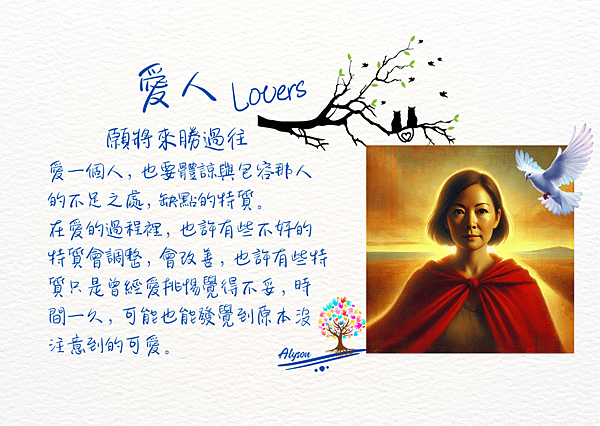 愛人 Lovers
願將來勝過往
愛一個人，也要體諒與包容那人
的不足之處，缺點的特質。
在愛的過程裡，也許有些不好的
特質會調整，會改善，也許有些特
質只是曾經愛挑惕覺得不妥，時
間一久，可能也能發覺到原本沒
注意到的可愛。
Alyson